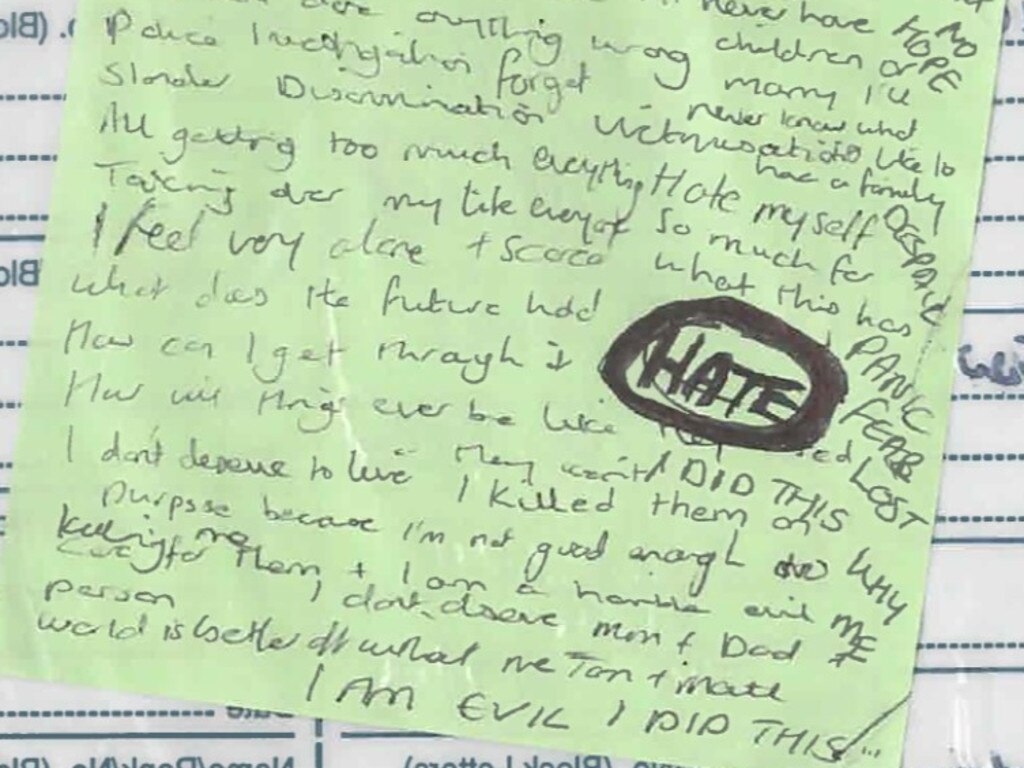 anything wrong
never have
NO HOPE
Police Investigation forget
children or
marry I'll
never know what
Slander Discrimination Victimisation
like to
have a family
All getting too much everything
Hate myself
DESPAIR
Taking over my life everyday
so much for
what this has
I feel very alone + scared
What does the future hold
HATE
PANIC
FEAR
LOST
How can I get through it
How will things ever be like
I don't deserve to live
I DID THIS
WHY
ME
I killed them on
purpose because I'm not good enough to
killing me
care for them + I am a horrible evil
person
I don't deserve mum + Dad
world is better off without me
I AM EVIL I DID THIS
(Block Letters)
Name/Rank/No.
Date